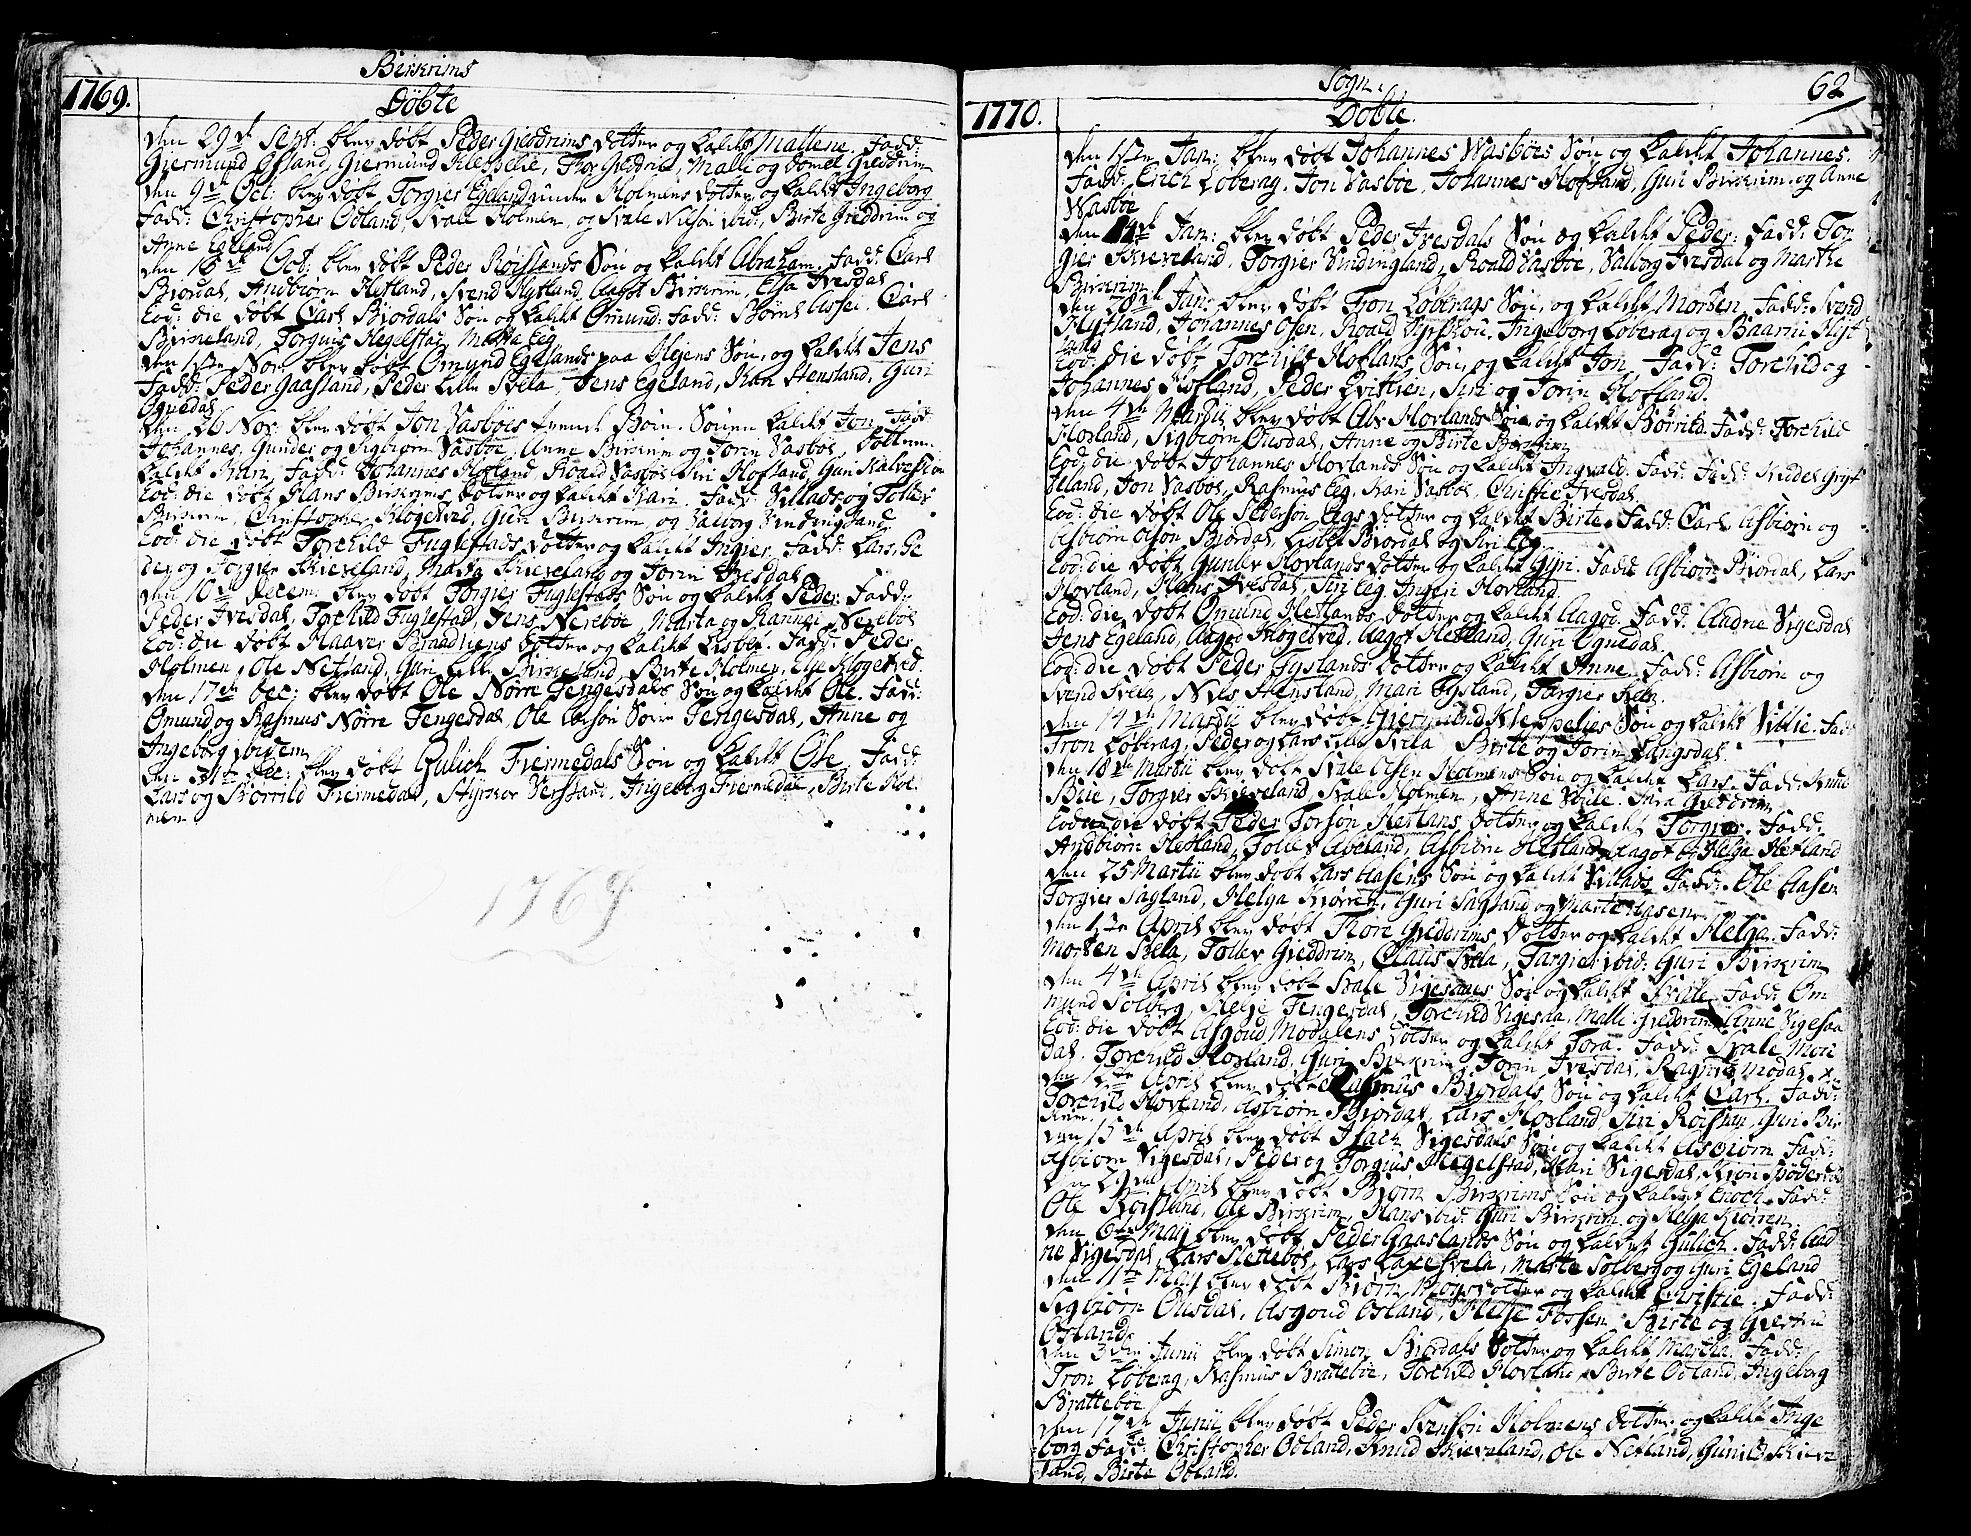 Birkrims
1769.
Döbte
Den 29de Sept. blev döbt Peder Gieddrims Dotter og kaldt Mallene. Fadd:
Giermund Espland, Giermund Kleppelie, Thor Gieddrim, Malli og Gieddrim
Den 9de Oct: blev döbt Torgier Egelands under Holmens Dotter og kaldt Ingeborg
Fadd: Christopher Odland, Svale Holmen, og Svale Nilsön ibid:, Birte Gieddrim og
Anne Egeland
Den 16de Oct: blev döbt Peder Röislands Sön og kaldt Abraham. Fadd: Carl
Biordal, Andbiörn Hetland, Svend Hytland, Aagot Birkrim, Elsa Ivesdal
Eod: die döbt Carl Biordals Sön og kaldt Ömund. Fadd: Carl
Birkeland, Torgius Hegelstad, Marta Eeg
Den Nov: blev döbt Ömund Egelands paa Hejens Sön, og kaldt Jens
Fadd: Peder Gaasland, Peder Lille Svela, Jens Egeland, Kari Stensland, Guri
Ognedal
Den 26 Nov: blev döbt Jon Vasböes tvende Börn. Sönnen kaldt Jon. Fadd:
Johannes, Gunder og Sigbiörn Vasböe, Anne Birkrim og Torin Vasböe, Dotteren
kaldt Kari, Fadd: Johannes Hofland, Roald Vasböe, Siri Hofland, Guri
Eod: die döbt Hans Birkrims Dotter og kaldt Kari. Fadd: Villads og Tollef
Birkrim, Christopher Klogetvid, Guri Birkrim, og Valborg Vindingland
Eod: die döbt Torchild Fuglestads Dotter og kaldt Ingier. Fadd: Lars, Pe
der og Torgier Skieveland, Marta Skieveland og Torin Ivesdal
Den 10de Decem: blev döbt Torgier Fuglestads Sön og kaldt Peder. Fadd:
Peder Ivesdal, Torchild Fuglestad, Jens Nereböe, Marta og Rannei Nereböe
Eod: die döbt Haaver Braadliens Dotter og kaldt Lisbet. Fadd: Peder
Holmen, Ole Netland, Guri Lille Birkeland, Birte Holmen, Else Klogetved
Den 17de Dec: blev döbt Ole Nörre Tengesdals Sön og kaldt Ole. Fadd:
Ömund og Rasmus Nörre Tengesdal, Ole Larsön Sönre Tengesdal, Anne og
Ingeborg ibidem
Den Dec: blev döbt Gulich Fiermedals Sön og kaldt Ole. Fadd:
Lars og Börrild Fiermedal, Styrkor Versland, Ingeborg Fiermedal, Birte Hol
men
1769
Sogn.
62
1770.
Döbte.
Den 1ste Jan: blev döbt Johannes Vasböes Sön og kaldt Johannes.
Fadd: Erich Löberag, Jon Vasböe, Johannes Hofland, Guri Birkrim og Anne
Wasböe
Den 14de Jan: blev döbt Peder Ivesdals Sön og kaldt Peder. Fadd: Tor
gier Skieveland, Torgier Vindingland, Roald Vasböe, Valborg Ivesdal og Marthe
Birkrim
Den 28de Jan: blev döbt Tron Löberags Sön, og kaldt Morten. Fadd: Svend
Hytland, Johannes Osen, Roald Gyrshou, Ingeborg Löberag og Baarni Hyt
land
Eod: die döbt Torchild Hoflans Sön, og kaldt Jon. Fadd: Torchild og
Johannes Hofland, Peder Qvitlien, Siri og Torin Hofland.
Den 4de Martii blev döbt Ole Hovlands Sön og kaldt Börrild. Fadd: Torchild
Hovland, Sigbiörn Ousdal, Anne og Birte Birkrim
Eod: die döbt Johannes Hovlands Sön og kaldt Ingvald. Fadd: Gryt
teland, Jon Vasböe, Rasmus Eeg, Kari Vasböe, Christie Ivesdal.
Eod: die döbt Ole Pederson Eegs Dotter og kaldt Birte. Fadd: Carl, Asbiörn og
Asbiörn Olson Biordal, Lisbet Biordal og Siri Eeg
Eod: die döbt Gunlev Hovlands Dotter og kaldt Gyri. Fadd: Asbiörn Biordal, Lars
Hovland, Hans Ivesdal, Siri Eeg, Ingeri Hovland.
Eod: die döbt Ömund Hetlands Dotter og kaldt Aagod. Fadd: Aadne Vigesdal
Jens Egeland, Aagod Klogetved, Aagot Hetland, Guri Ognedal.
Eod: die döbt Peder Tyslands Dotter og kaldt Anne. Fadd: Asbiörn og
Svend Svela, Niels Stensland, Mari Tysland, Torgier Svela.
Den 14de Martii blev döbt Giermund Kleppelies Sön og kaldt Villie. Fad:
Tron Löberag, Peder og Lars Lille Svela, Birte og Torin Langsdal.
Den 18de Martii blev döbt Svale Olsen Holmens Sön og kaldt Lars. Fadd: Knud
Beie, Torgier Skieveland, Svale Holmen, Anne, Gieddrim
Eodem die döbt Peder Torsön Hetlans Dotter og kaldt Torgier. Fadd:
Andbiörn Hetland, Tollef Aveland, Asbiörn Hetland, Aagot og Helga Hetland
Den 25 Martii blev döbt Lars Aasens Sön og kaldt Villads. Fadd: Ole Aasen
Torgier Sagland, Helga Kiörren, Guri Sagland og Marte Aasen.
Den 1ste April blev döbt Thore Gieddrims Dotter og kaldt Helga. Fadd:
Morten Svela, Tollev Gieddrim, Claus Svela, Torgier ibid: Guri Birkrim
Den 4de April blev döbt Svale Vigesdals Sön og kaldt Svale. Fadd: Öm
mund Solberg, Helje Tengesdal, Torchild Vigesdal, Malli Gieddrim, Anne Vigesda
Eod: die döbt Asgoud Modalens Dotter og kaldt Tora. Fadd: Svale Mon
dal, Torchild Hovland, Guri Birkrim, Torin Ivesdal, Ragnild Modal
Den April blev döbt Rasmus Biordals Sön og kaldt Carl. Fadd:
Torchild Hovland, Asbiörn Biordal, Lars Hovland, Siri Röislan, Guri Bir
krim.
Den 15de April blev döbt Isach Vigesdals Sön og kaldt Asbiörn. Fadd:
Asbiörn Vigesdal, Peder og Torgius Hegelstad, Kari Vigesdal,
Den 29de April blev döbt Biörn Birkrims Sön og kaldt Enoch. Fadd:
Ole Röisland, Ole Birkrim, Hans ibid: Guri Birkrim og Helga Kiörren
Den 6te Maij blev döbt Peder Gaaslands Sön og kaldet Gulich. Fadd: Aad
ne Vigesdal, Lars Sletteböe, Lars Laxesvela, Marte Solberg og Guri Egeland
Den 11te Maij blev döbt Biörn Dotter og kaldt Christie. Fadd:
Sigbiörn Ousdal, Asgoud Osland, Helje Fossen, Birte og Giertru
Osland.
Den 3die Junii blev döbt Simon Biordals Dotter og kaldt Martha. Fadd:
Tron Löberag, Rasmus Bratteböe, Torchild Hovland, Birte Odland, Ingeborg
Bratteböe
Den 17de Junii blev döbt Peder Svensön Holmens Dotter og kaldt Inge
borg. Fadd: Christopher Odland, Knud Skieveland, Ole Netland, Guri Skieve
land, Birte Odland.